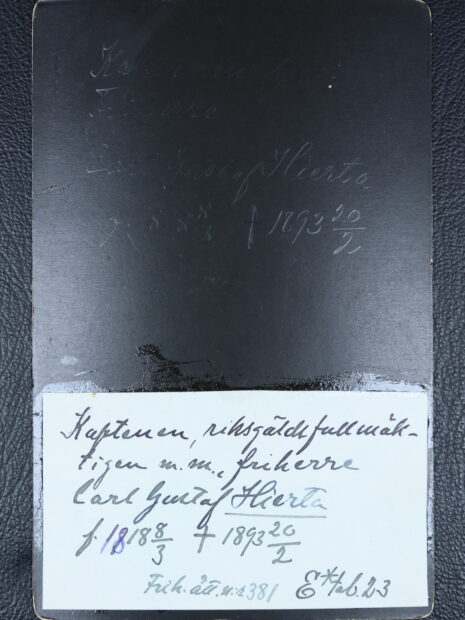 Gustaf Hierta
† 1893 20/2
Kaptenen, riksgäldsfullmäk-
tigen m.m., friherre
Carl Gustaf Hierta
f. 1818 8/3 † 1893 20/2
Frih. ätt. n:r 381 E*tab. 23